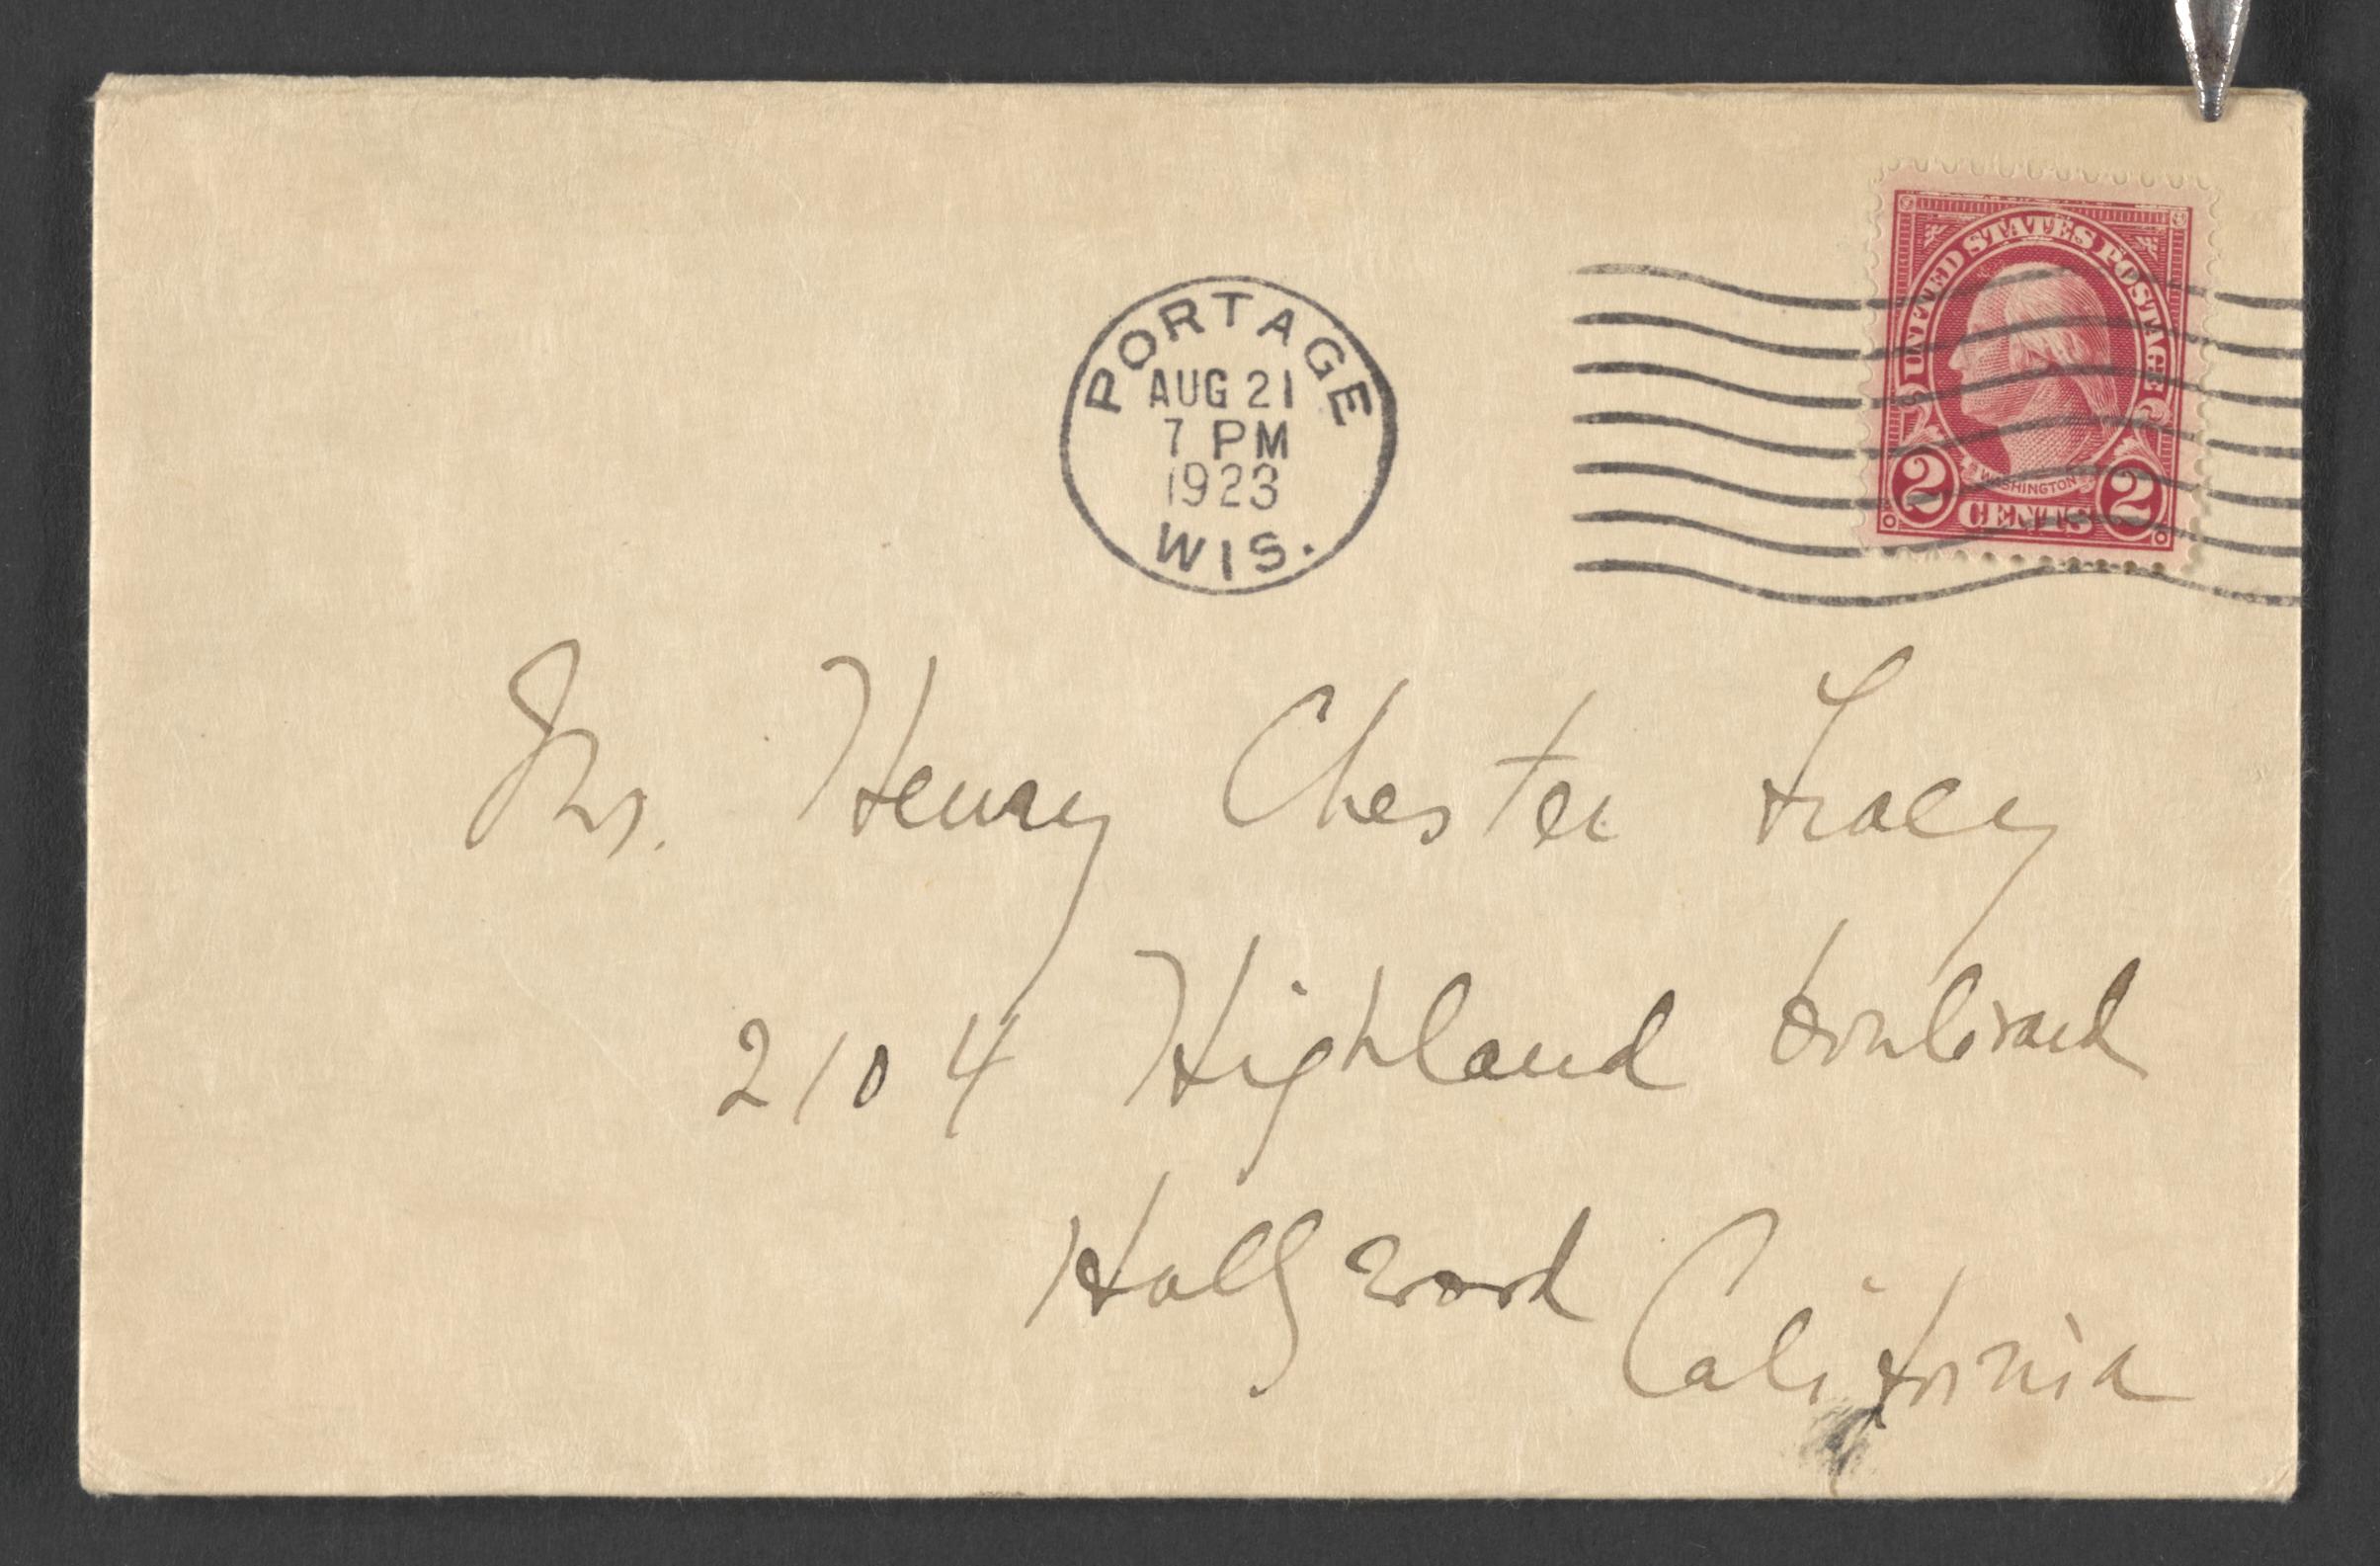 PORTAGE
AUG 21
7 PM
1923
WIS.
UNITED STATES POSTAGE
WASHINGTON
2 CENTS 2
Mr. Henry Chester Tracy
2104 Highland boulevard
Hollywood
California